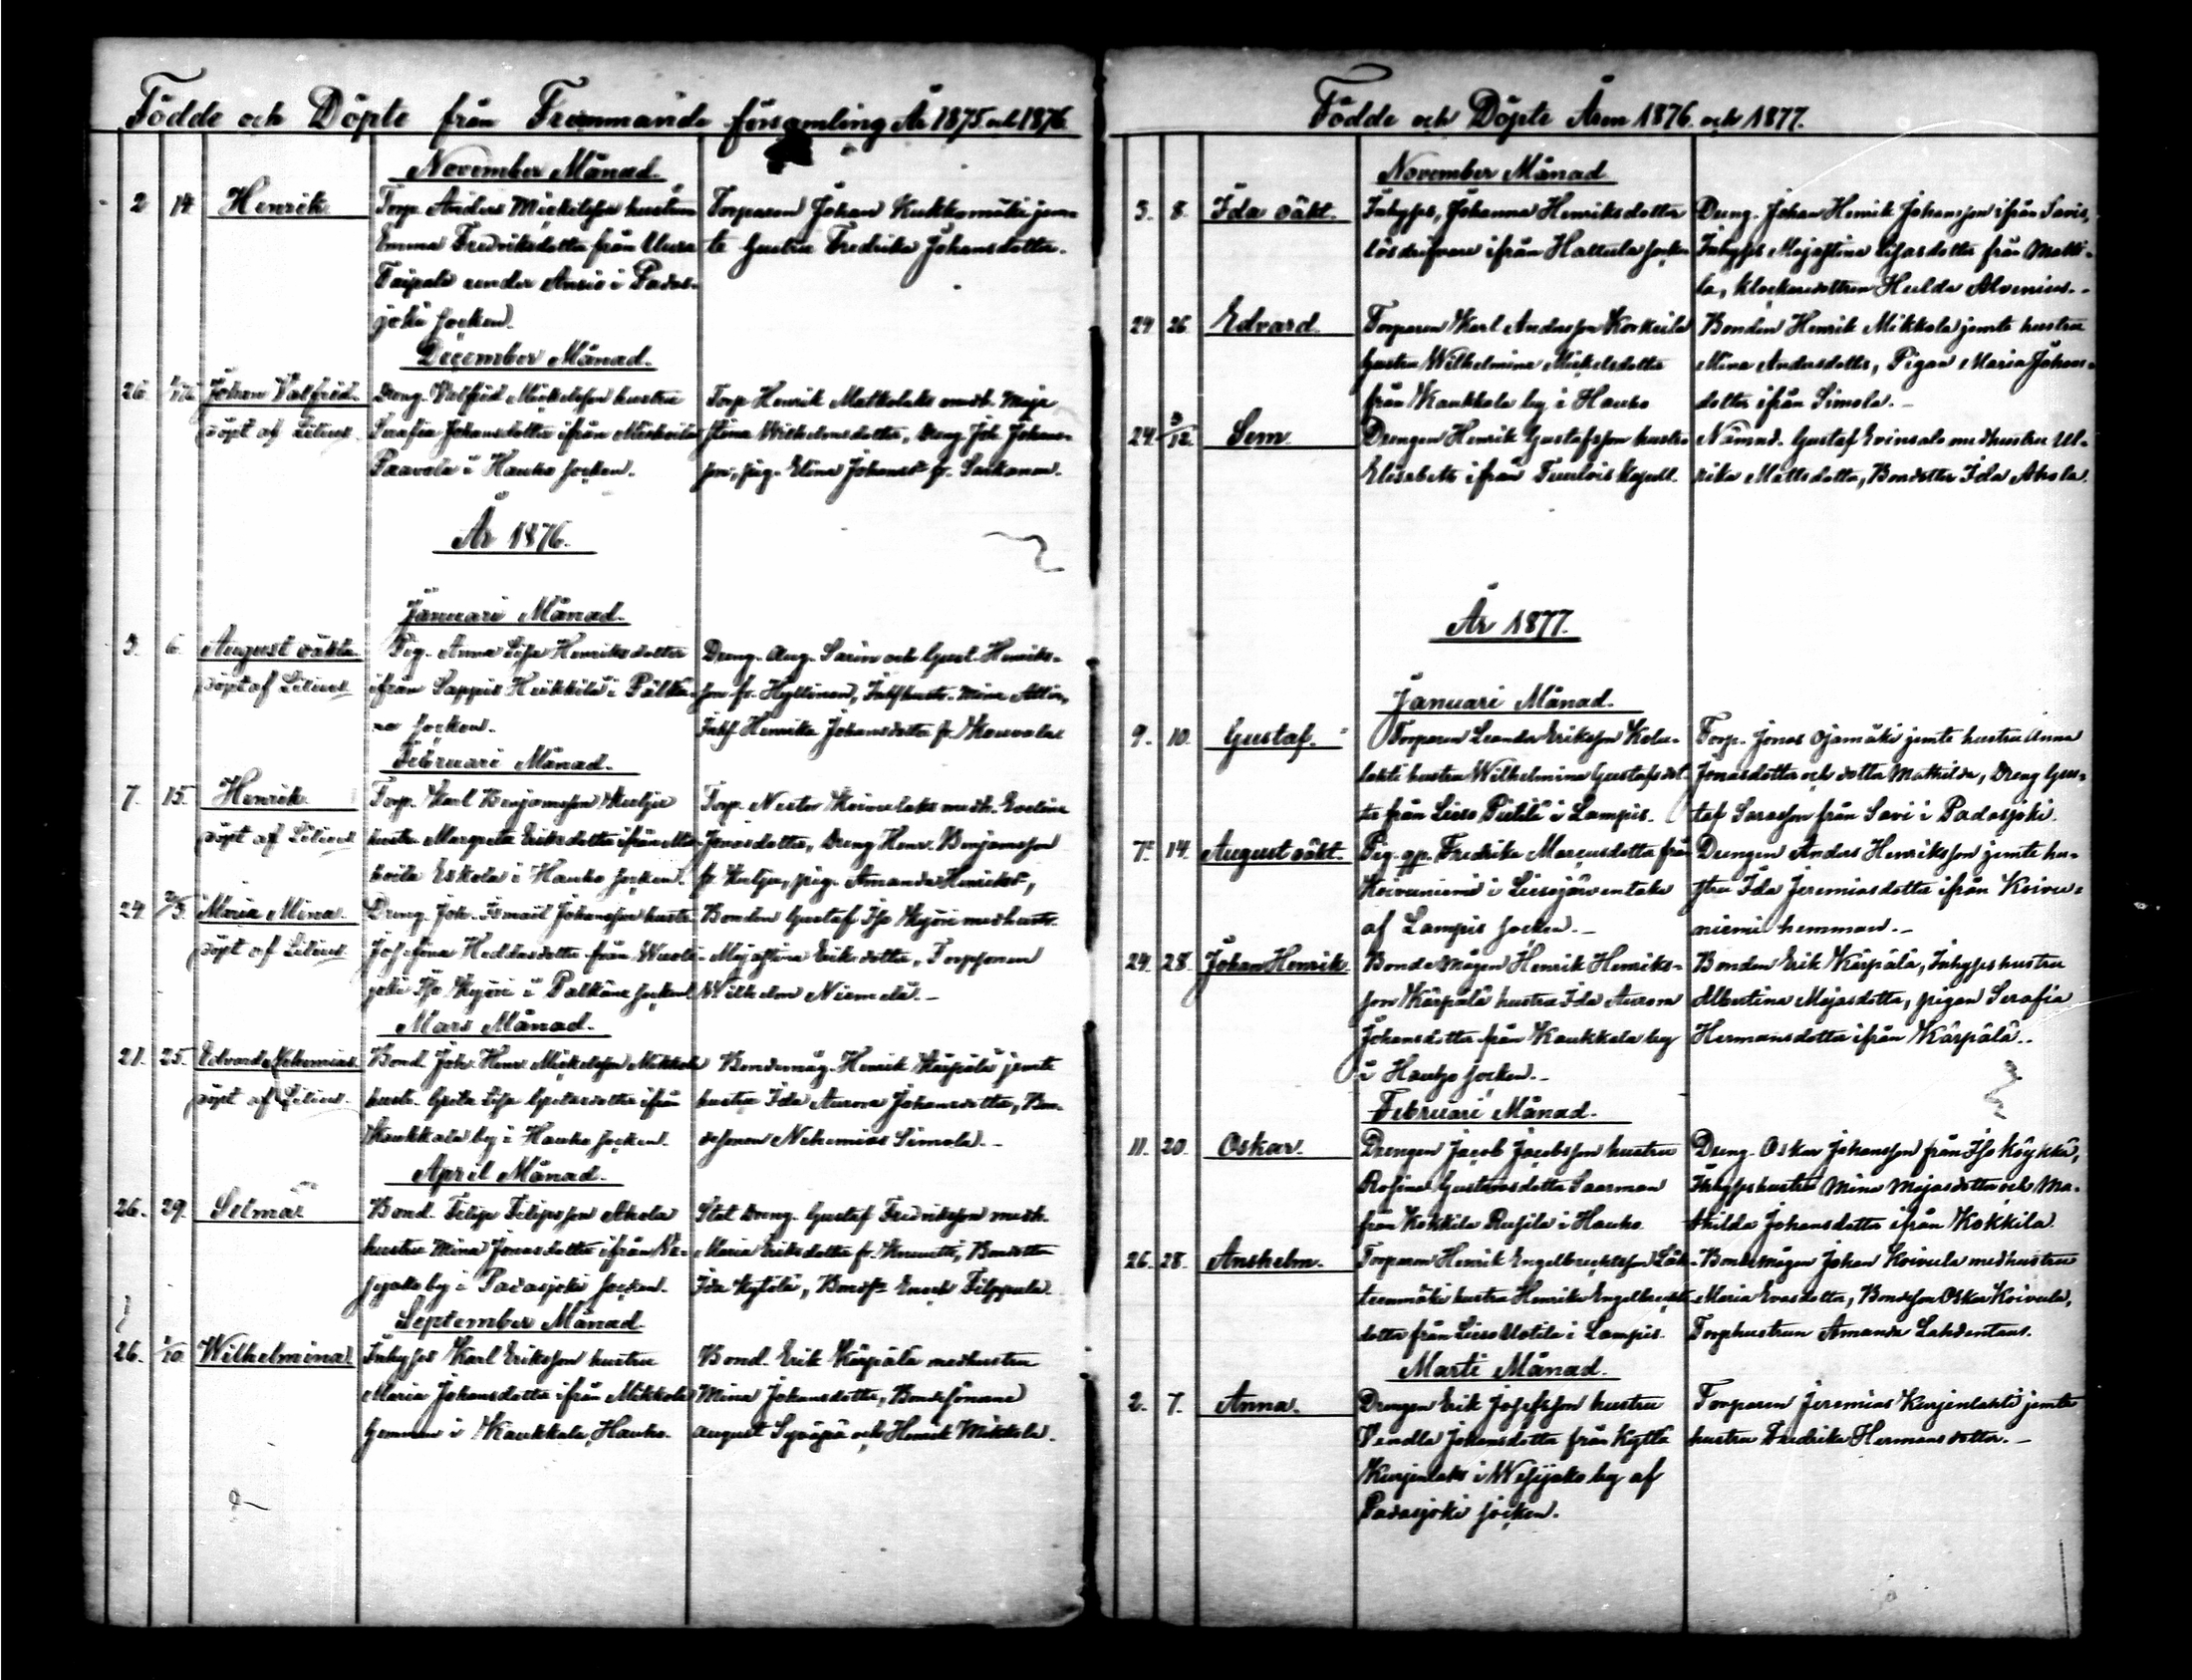 Födde och Döpte från Främmande församling År 1875 och 1876.
November Månad.
2 14 Henrik Torp. Anders Mickelsson hustru
Emma Fredriksdotter från
Taipale under Ansio i Padas-
joki socken.
Torparen Johan Kukkomäki jem-
te hustru Fredrika Johansdotter.
December Månad.
26. Johan Valfrid.
döpt af Lilius.
Dreng. Valfrid Mickelsson hustru
Serafia Johansdotter ifrån
Paavola i Hauho socken.
Torp Henrik Matkolaks medh. Maja
Stina Wilhelmsdotter, Dreng Joh. Johans-
son, pig. Elina Johansdr fr.
År 1876.
Januari Månad.
3. 6. August oäkta.
döpt af Lilius
Pig. Anna Lisa Henriksdotter
ifrån Sappis Heikkilä i Pälkä-
ne socken.
Dreng. Aug. Sarin och Gust. Henriks-
son fr. Mina
Henrika Johansdotter fr.
Februari Månad.
7. 15. Henrik
döpt af Lilius
Torp. Karl Benjamsson
hustr. Margreta Eriksdotter ifrån
Eskola i Hauho socken.
Torp. Nestor medh. Evelina
Jonasdotter, Dreng Henr. Benjamsson
pig. Amanda Henriksdr,
24. Maria Mina.
döpt af Lilius
Dreng. Joh. Ismail Johansson hustr.
Josefina från
Iso i Pälkäne socken
Bonden Gustaf Iso medhustr.
Majastina Eriksdotter, Torpsonen
Wilhelm Niemelä. –
Mars Månad.
21. 25. Edvard Nehemias
döpt af Lilius.
Bond. Joh. Henr. Mickelsson Mikkola
hustr. Greta Lisa ifrån
Kaukkala by i Hauho socken.
Bondemåg. Henrik Kärpälä jemte
hustru Ida Aurora Johansdotter, Bon-
desonen Nehemias Simola. –
April Månad.
26. 29. Selma
Bond. Filip Filipsson Ahola
hustru Mina Jonasdotter ifrån We-
sijako by i Padasjoki socken.
Stat Dreng. Gustaf Fredriksson medh.
Maria Eriksdotter fr. Bondottr
Ida Kytölä, Bonds. Enock Filppula.
September Månad.
26. 1/10 Wilhelmina
Inhyses Karl Eriksson hustru
Maria Johansdotter ifrån Mikkola
hemman i Kaukkala, Hauho.
Bond. Erik Kärpälä medhustru
Mina Johansdotter, Bondesönerne
August och Henrik Mikkola.
Födde och Döpte Åren 1876. och 1877.
November Månad
5. 8. Ida oäkt.
Inhyses, Johanna Henriksdotter
lösdrifvare ifrån Hattula socken
Dreng. Johan Henrik Johansson ifrån Savis,
Inhyses Majastina Lisasdotter från Matti-
la, klockaredottren Hulda Alvenius. -
24. 26. Edvard.
Torparen Karl Andersson
hustru Wilhelmina Mickelsdotter
från Kaukkala by i Hauho
Bonden Henrik Mikkola jemte hustru
Mina Andersdotter, Pigan Maria Johans-
dotter ifrån Simola. –
24. 3/12 Sem
Drengen Henrik Gustafsson hustru
Elisabeth ifrån Tuulois kapell.
Nämnd. Gustaf Evinsalo medhustru Ul-
rika Mattsdotter, Bondottr Ida Ahola.
År 1877.
Januari Månad.
9. 10. Gustaf.
Torparen Leander Eriksson
hustru Wilhelmina Gustafsdot-
ter från Lieso Pietilä i Lampis.
Torp. Jonas Ojamäki jemte hustru Anna
Jonasdotter och dotter Mathilda, Dreng Gus-
taf Sarasson från Savi i Padasjoki.
7. 14. August oäkt.
Pig. Fredrika Marcusdotter från
Koivuniemi i
af Lampis socken. –
Drengen Anders Henriksson jemte hu-
stru Ida Jeremiasdotter ifrån Koivu-
niemi hemman. –
24. 28. Johan Henrik
Bondemågen Henrik Henriks-
son Kärpälä hustru Ida Aurora
Johansdotter från Kaukkala by
i Hauho socken. –
Bonden Erik Kärpälä, Inhyses hustru
Albertina Majasdotter, pigan Serafia
Hermansdotter ifrån Kärpälä. .
Februari Månad.
11. 20. Oskar.
Drengen Jacob Jacobsson hustru
Rosina Gustavsdotter Saarman
från Kokkila i Hauho
Dreng. Oskar Johansson från Iso
Inhyseshustru Mina Majasdotter och Ma-
thilda Johansdotter ifrån Kokkila.
26. 28. Anshelm.
Torparen Henrik Engelbrechtsson
hustru Henrika Engelbrechts-
dotter från Lieso Uotila i Lampis.
Bondemågen Johan Koivula medhustru
Maria Evasdotter, Bondeson Oskar Koivula,
Torphustrun Amanda
Marti Månad.
2. 7. Anna.
Drengen Erik Josefsson hustru
Vendla Johansdotter från
i Wesijako by af
Padasjoki socken.
Torparen Jeremias Kurjenlahti jemte
hustru Fredrika Hermansdotter. –